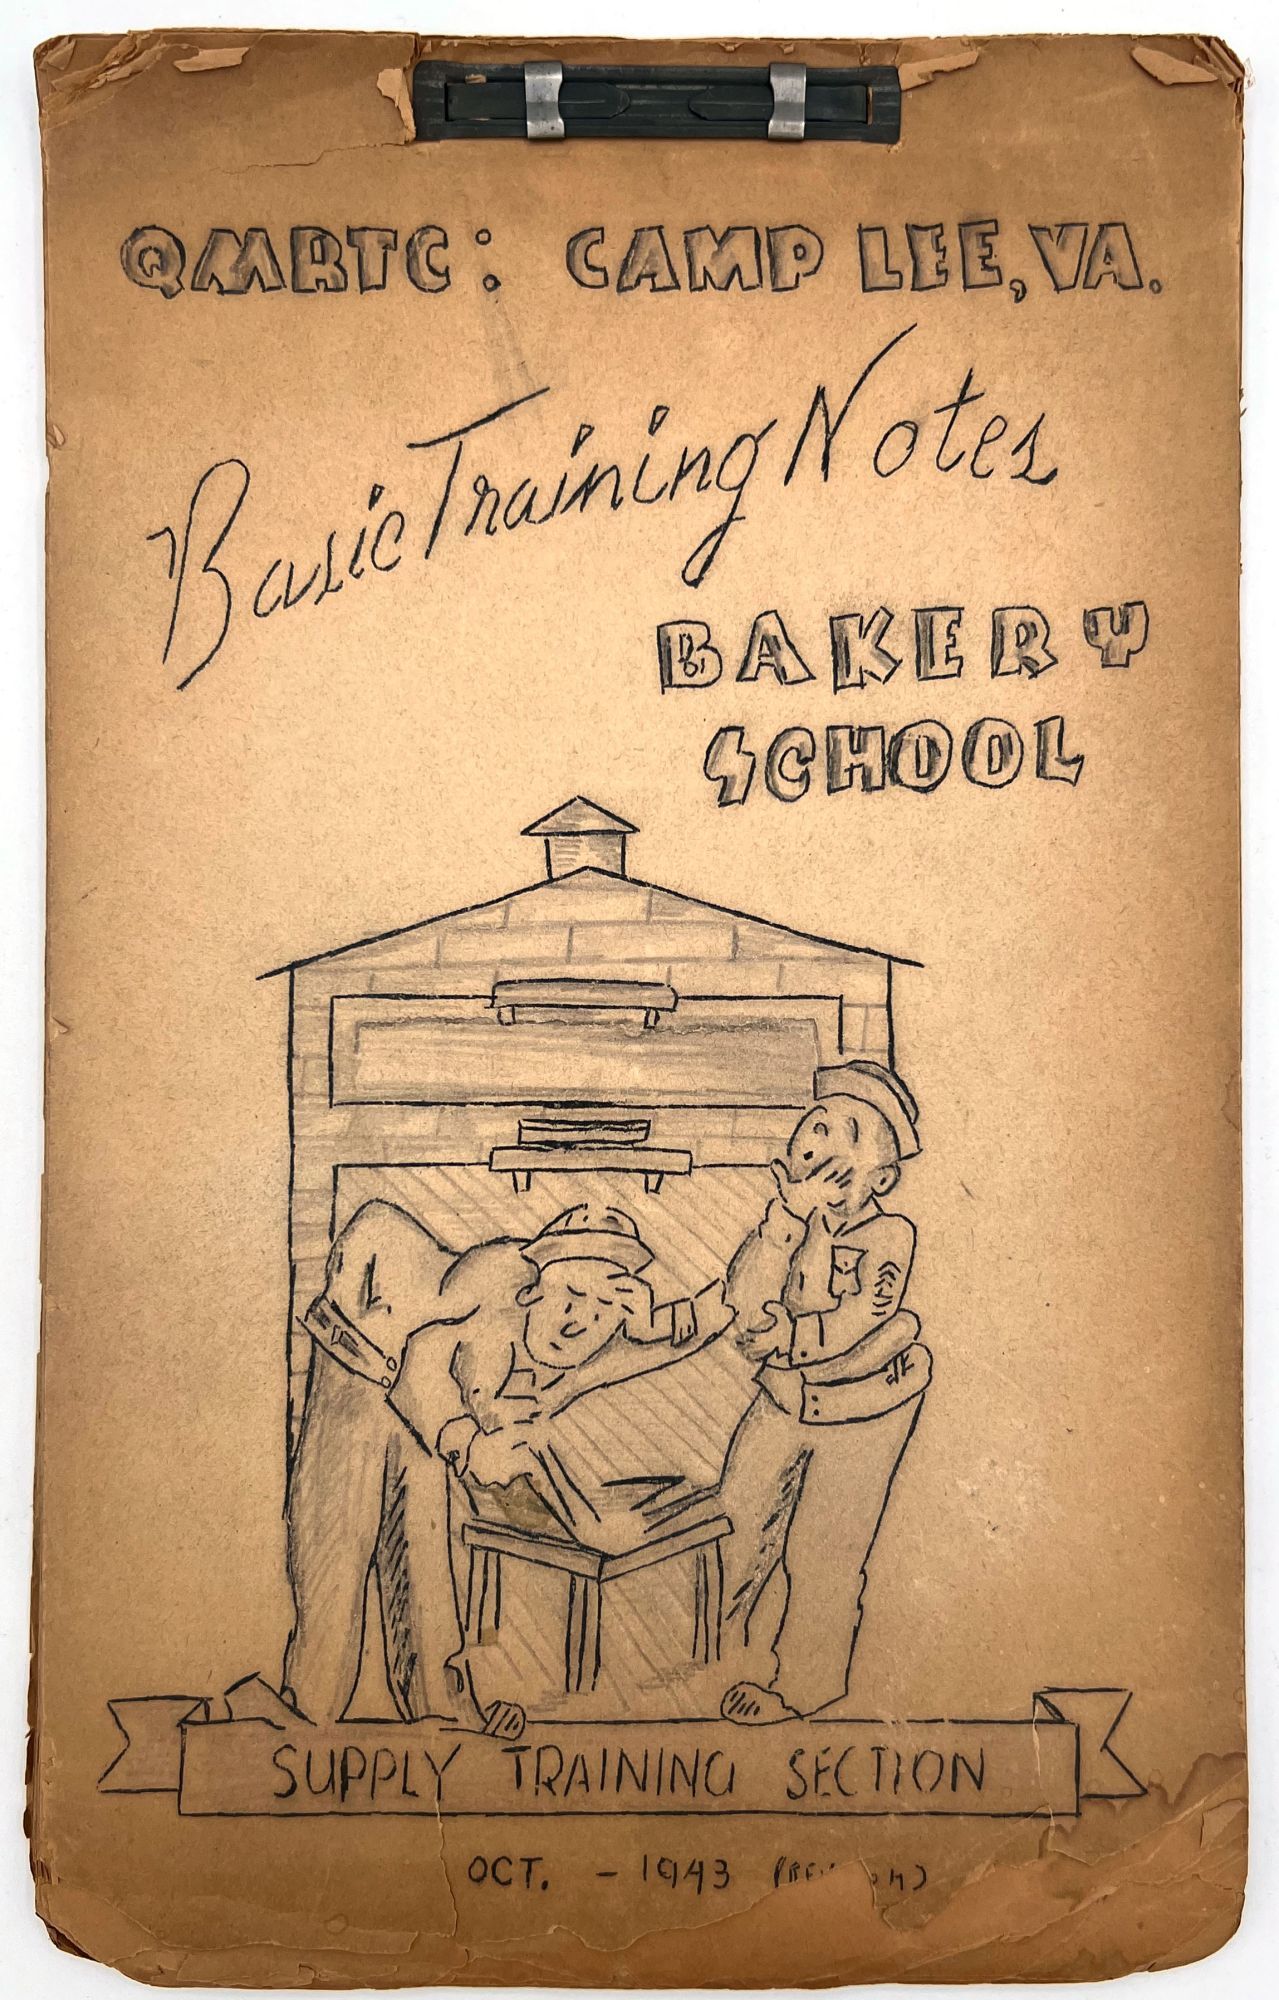 QMRTC: CAMP LEE, VA.
Basic Training Notes
BAKERY
SCHOOL
SUPPLY TRAINING SECTION
OCT. - 1943